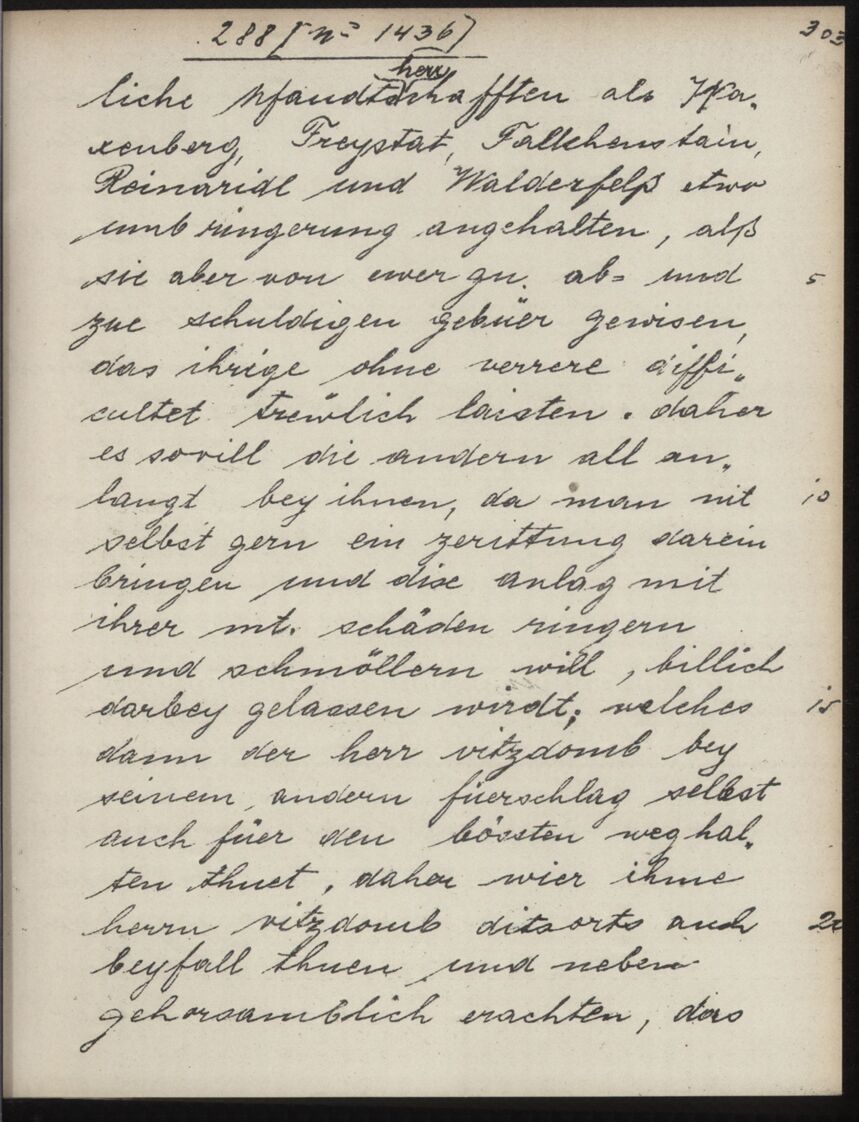 288 [Nº 1436] 303
herr
liche pfandtschafften als Wa„
xenberg, Freystat, Falkhenstain,
Reinaridl und Walderfelß etwo
umb ringerung angehalten, alß
sie aber von ewer gn. ab= und 5
zue schuldigen gebüer gewisen,
das ihrige ohne verrere diffi„
cultet trewlich laisten. daher
es sovill die andern all an„
langt bey ihnen, da man nit 10
selbst gern ein zerittung darein
bringen und dise anlag mit
ihrer mt. schäden ringern
und schmöllern will, billich
darbey gelassen wirdt; welches 15
dann der herr vitzdomb bey
seinem andern füerschlag selbst
auch füer den bössten weg hal„
ten thuet, daher wier ihme
herrn vitzdomb ditsorts auch 20
beyfall thuen und neben
gehorsamblich erachten, das